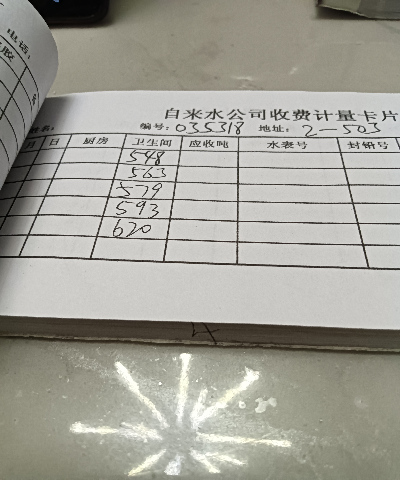 电话:
自来水公司收费计量卡片
编号: 035318 地址: 2-503
月 日 厨房 卫生间 应收吨 水表号 封铅号
548
563
579
593
620